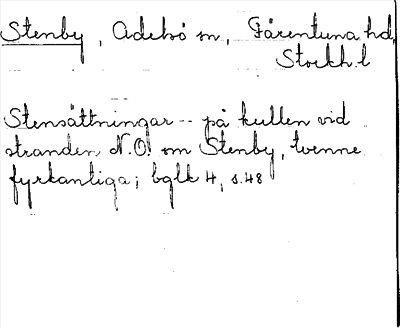 Stenby, Adelsö sn, Färentuna hd,
Stockh. l
Stensättningar -- på kullen vid
stranden N.O. om Stenby, tvenne
fyrkantiga; bglk 4, s.48